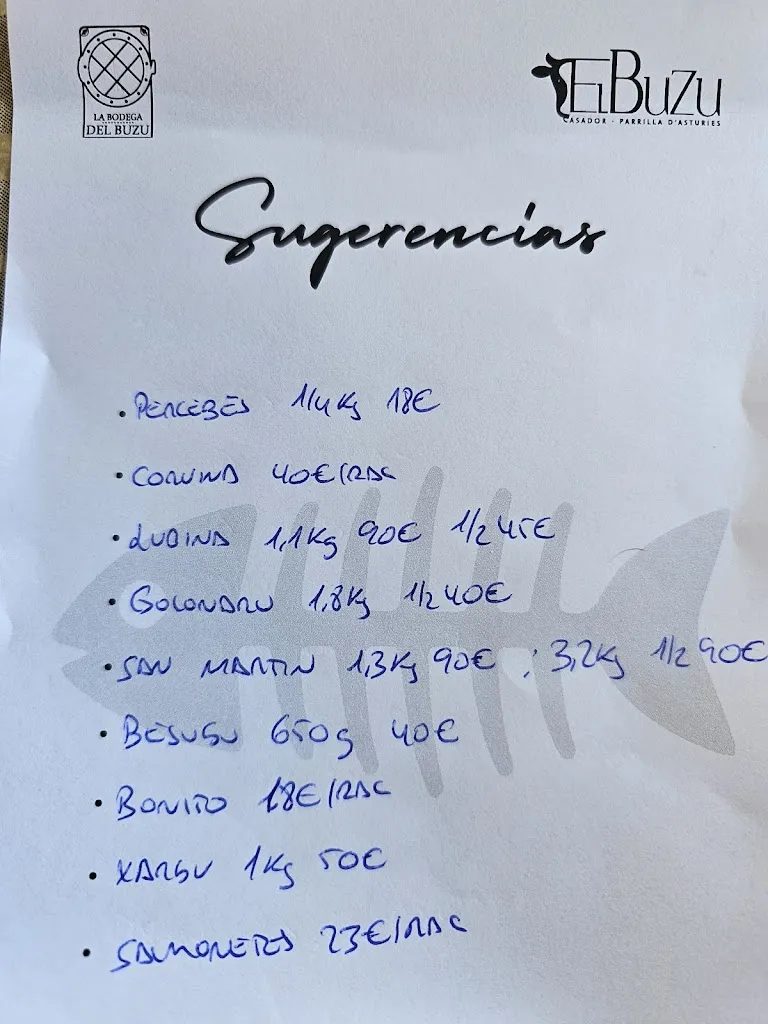 LA BODEGA
DEL BUZU
El BuZu
CASADOR - PARRILLA D'ASTURIES
Sugerencias
• PERCEBES 1/4 Kg 18€
• CORVINA 40€/RAC
• LUBINA 1,1Kg 90€ 1/2 45€
• GOLONDRU 1,8Kg 1/2 40€
• SAN MARTIN 1,3Kg 90€ ; 3,2Kg 1/2 90€
• BESUGU 650g 40€
• BONITO 18€/RAC
• XARGU 1Kg 50€
• SALMONETES 23€/RAC